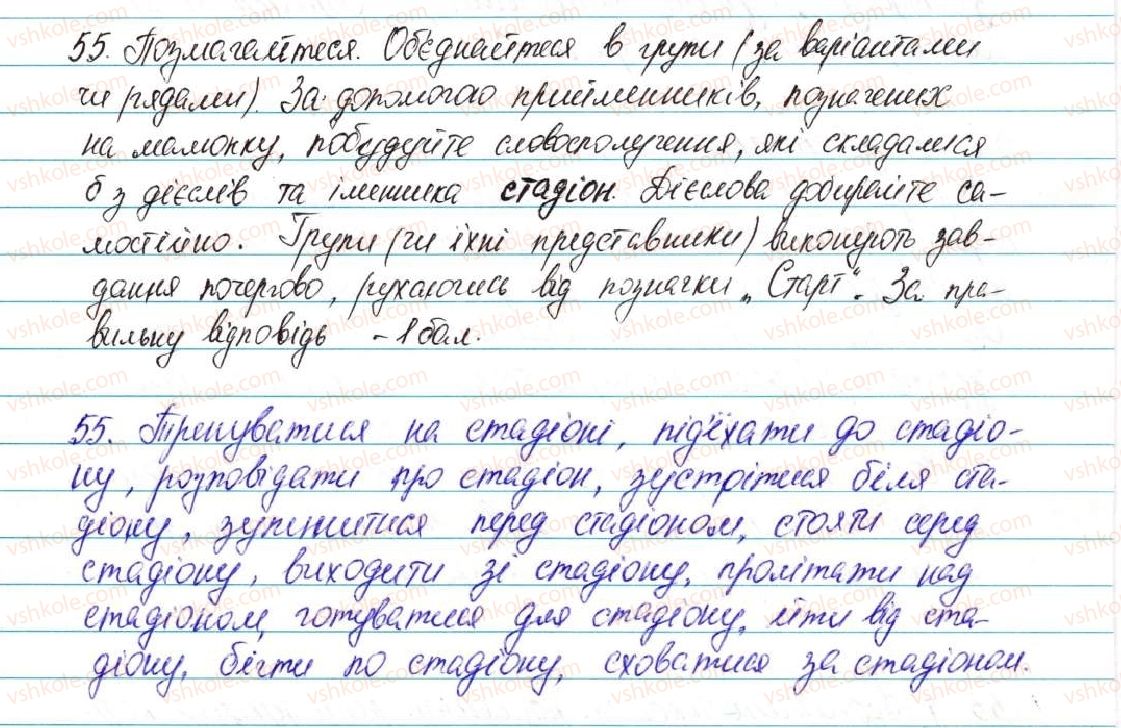 55. Позмагайтеся. Об'єднайтеся в групи (за варіантами
чи рядами). За допомогою прийменників, позначених
на малюнку, побудуйте словосполучення, які складалися
б з дієслів та іменника стадіон. Дієслова добирайте са-
мостійно. Групи (чи їхні представники) виконують зав-
дання почергово, рухаючись від позначки „Старт". За пра-
вильну відповідь - 1 бал.
55. Тренуватися на стадіоні, під'їхати до стадіо-
ну, розповідати про стадіон, зустрітися біля ста-
діону, зупинитися перед стадіоном, стояти серед
стадіону, виходити зі стадіону, пролітати над
стадіоном, готуватися для стадіону, йти від ста-
діону, бігти по стадіону, сховатися за стадіоном.